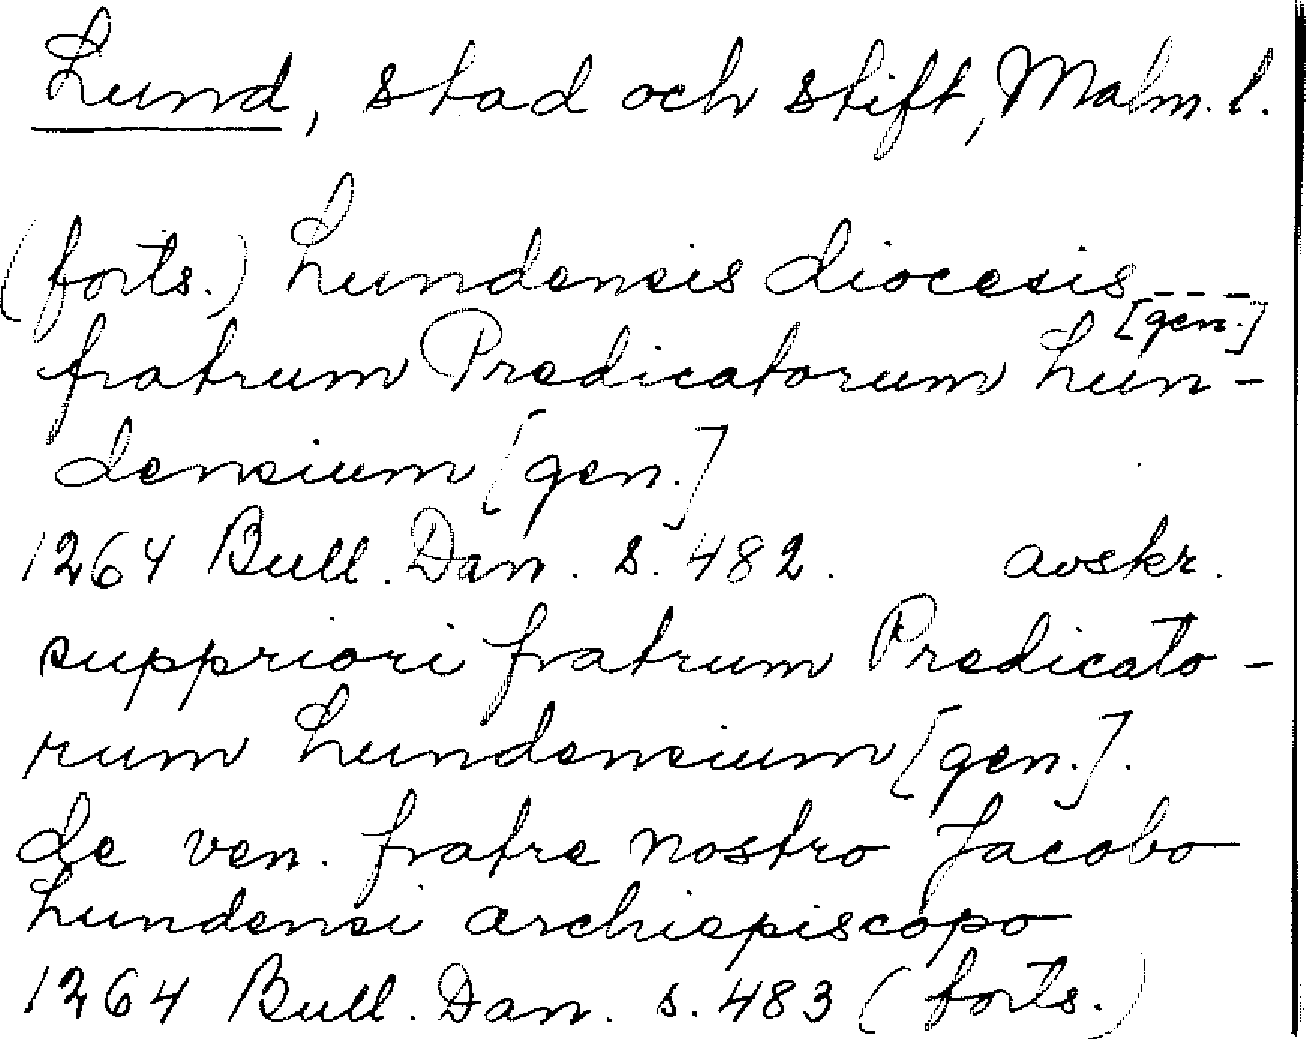 Lund, stad och stift, Malm. l.
(forts.) Lundensis diocesis ---
[gen.]
fratrum Predicatorum Lun-
densium [gen.]
1264 Bull. Dan. s. 482. avskr.
suppriori fratrum Predicato-
rum Lundensium [gen.].
de ven. fratre nostro Jacobo
Lundensi archiepiscopo
1264 Bull. Dan. s. 483 (forts.)